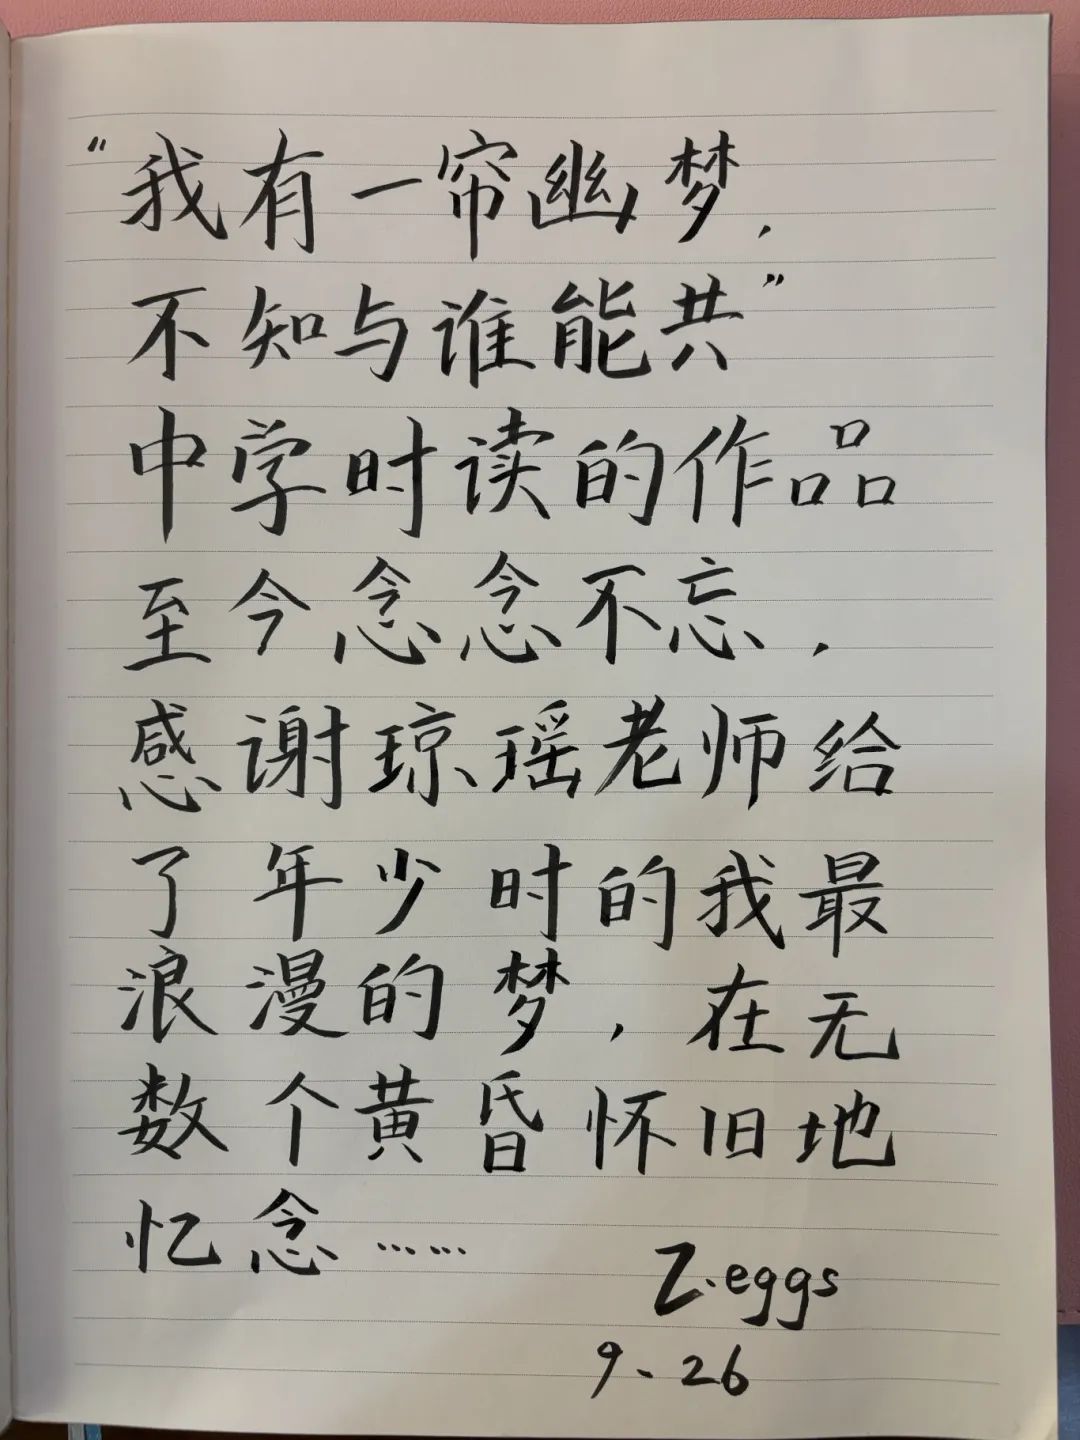 “我有一帘幽梦，
不知与谁能共”
中学时读的作品
至今念念不忘，
感谢琼瑶老师给
了年少时的我最
浪漫的梦，在无
数个黄昏怀旧地
忆念……
Z.eggs
9.26